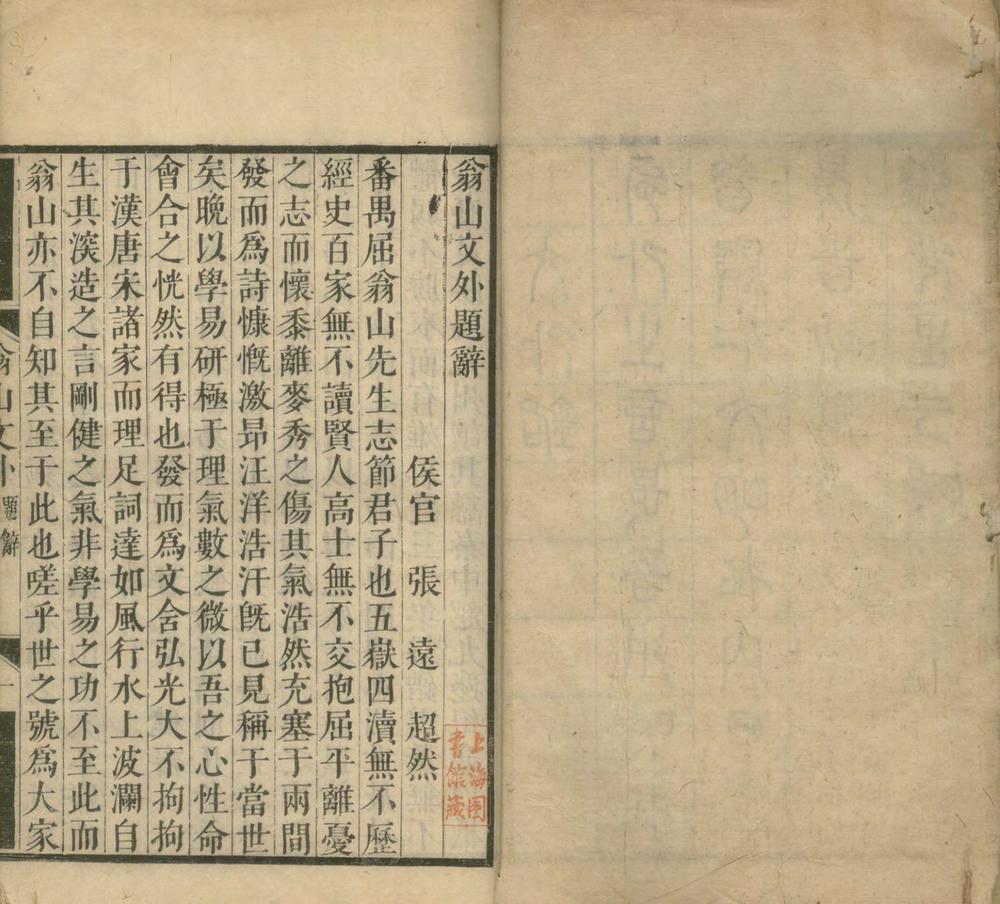 翁山文外題辭
侯官 張 遠 超然
番禺屈翁山先生志節君子也五嶽四瀆無不歷
經史百家無不讀賢人高士無不交抱屈平離憂
之志而懷黍離麥秀之傷其氣浩然充塞于兩間
發而爲詩慷慨激昻汪洋浩汗旣已見稱于當世
矣晚以學易研極于理氣數之微以吾之心性命
會合之恍然有得也發而爲文含弘光大不拘拘
于漢唐宋諸家而理足詞達如風行水上波瀾自
生其深造之言剛健之氣非學易之功不至此而
翁山亦不自知其至于此也嗟乎世之號爲大家
翁山文外 題辭
一
上海图
書館藏